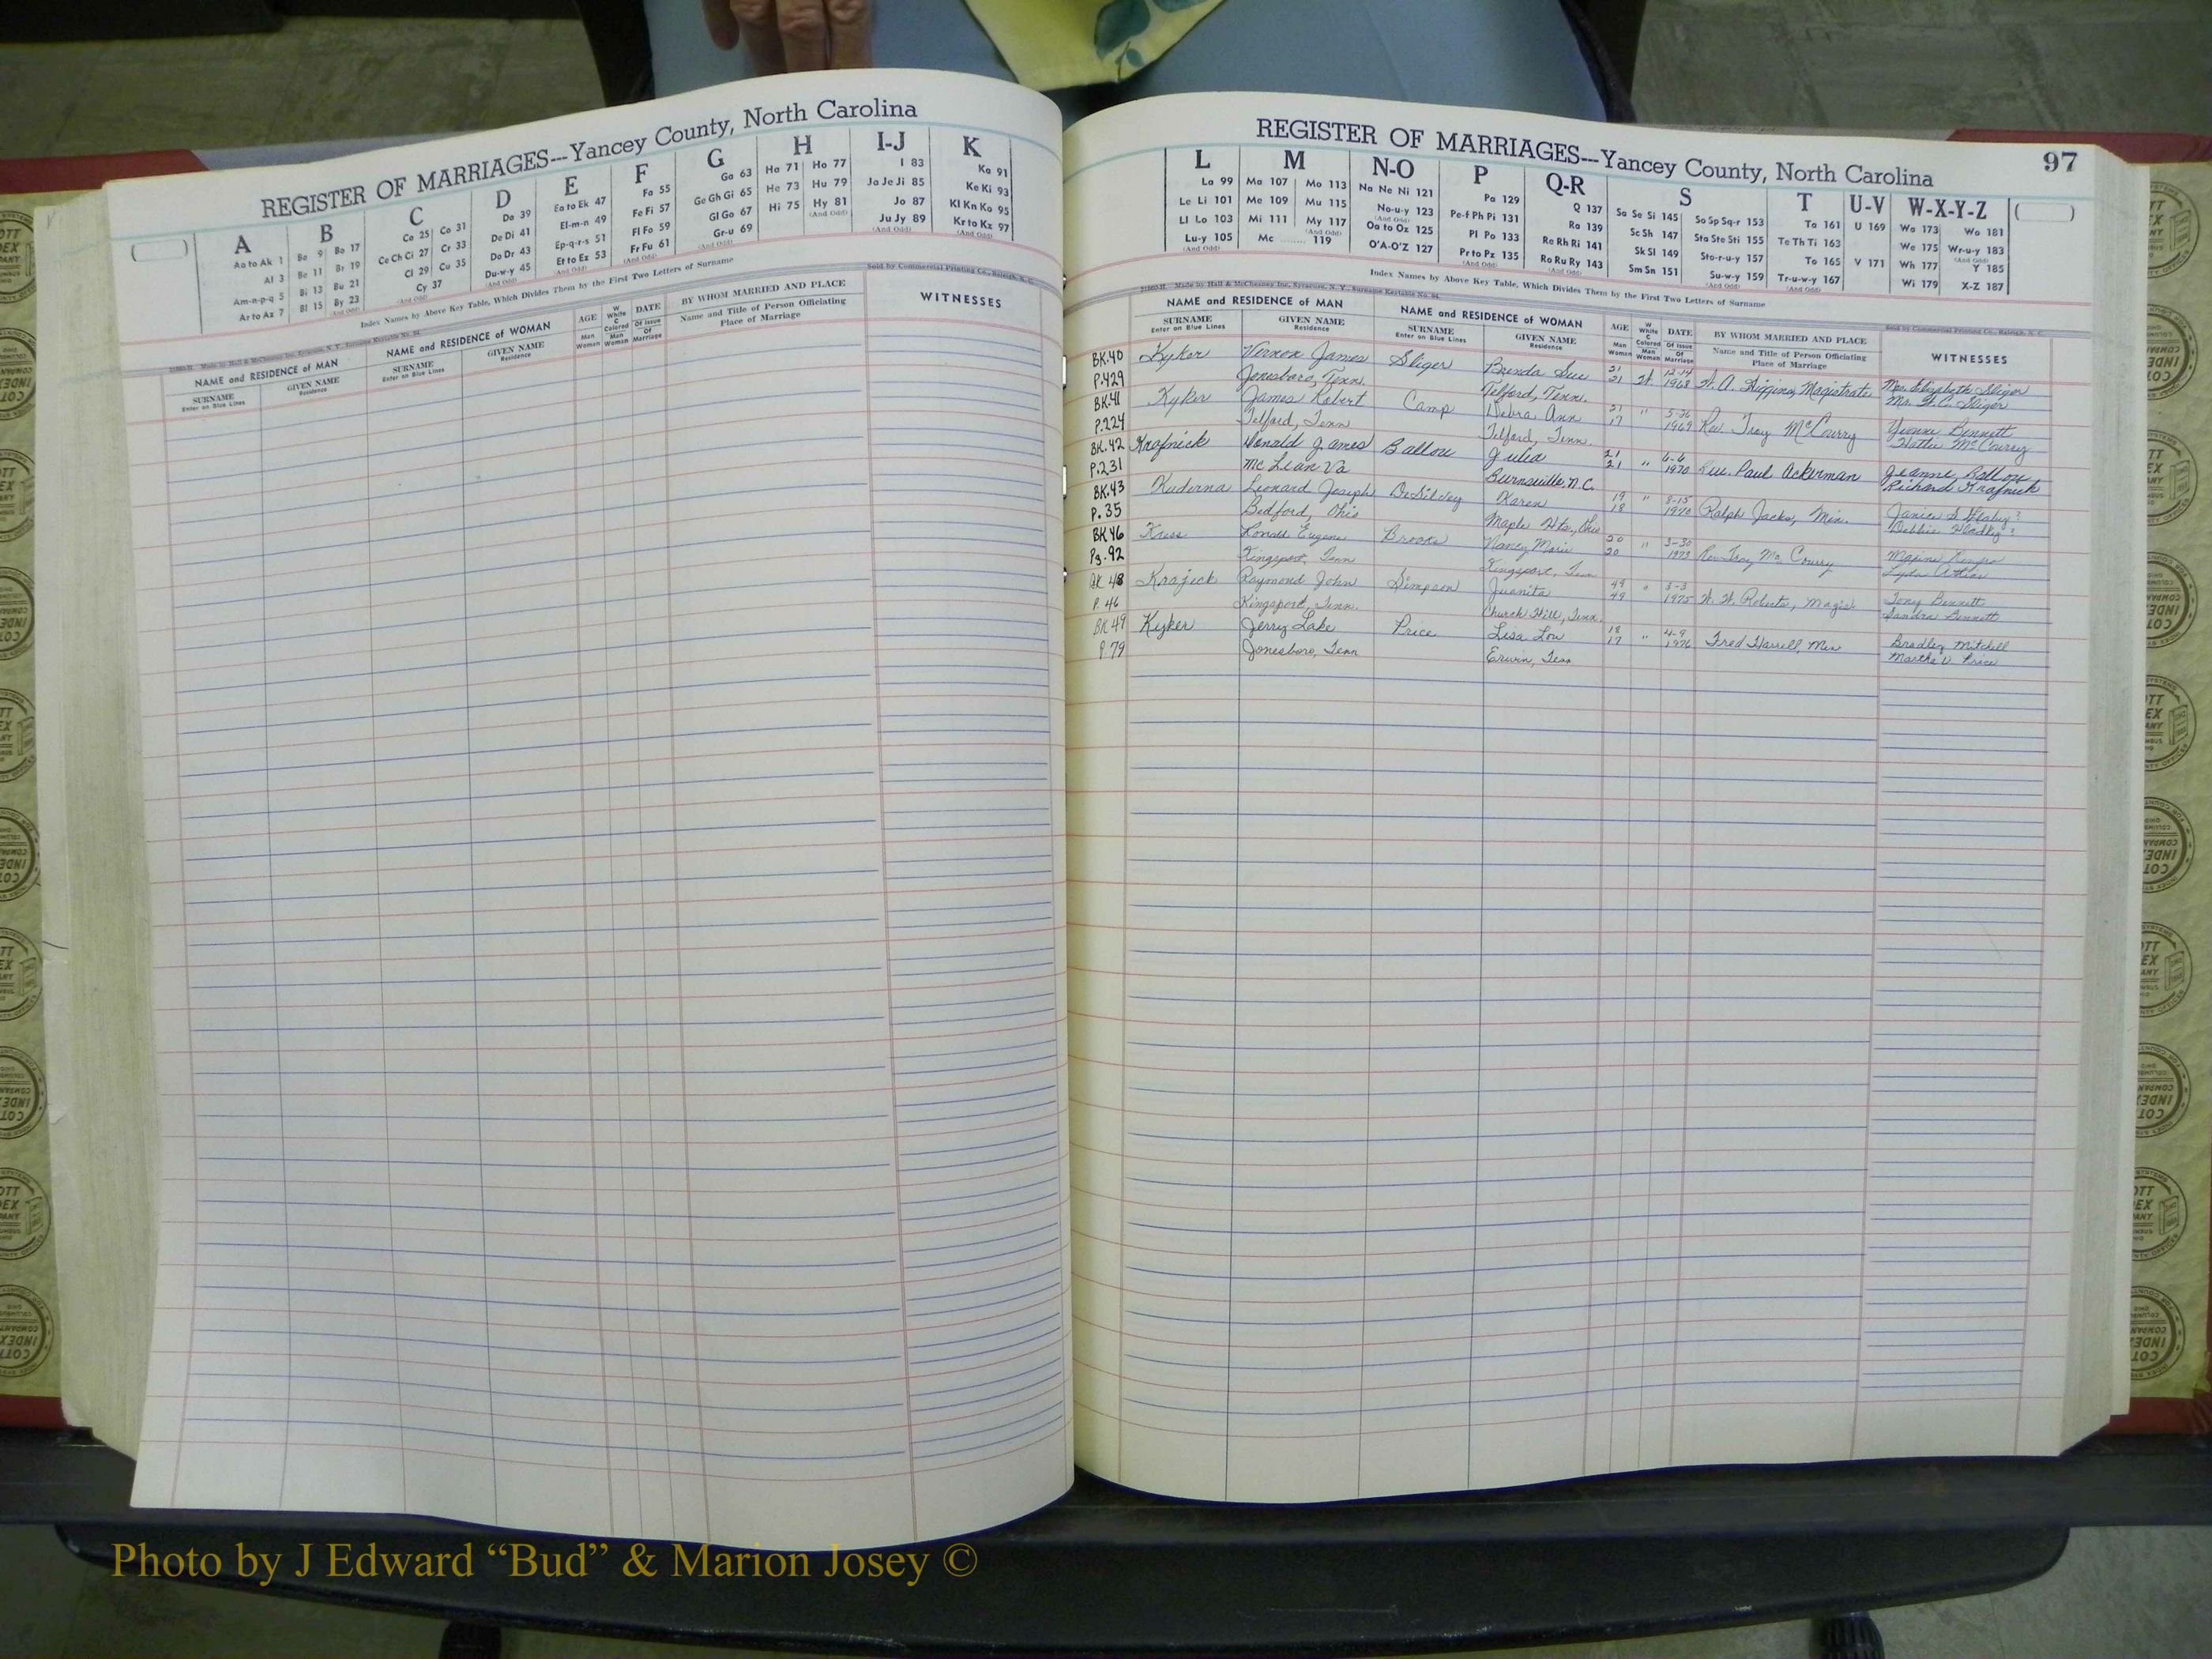 REGISTER OF MARRIAGES---Yancey County, North Carolina
( ) A B C D E F G H I-J K
Aa to Ak 1 Ba 9 Bo 17 Ca 25 Co 31 Da 39 Ea to Ek 47 Fa 55 Ga 63 Ha 71 Ho 77 I 83 Ka 91
Al 3 Be 11 Br 19 Ce Ch Ci 27 Cr 33 De Di 41 El-m-n 49 Fe Fi 57 Ge Gh Gi 65 He 73 Hu 79 Ja Je Ji 85 Ke Ki 93
Am-n-p-q 5 Bi 13 Bu 21 Cl 29 Cu 35 Do Dr 43 Ep-q-r-s 51 Fl Fo 59 Gl Go 67 Hi 75 Hy 81 Jo 87 Kl Kn Ko 95
Ar to Az 7 Bl 15 By 23 Cy 37 Du-w-y 45 Et to Ez 53 Fr Fu 61 Gr-u 69 (And Odd) Ju Jy 89 Kr to Kz 97
(And Odd) (And Odd) (And Odd) (And Odd) (And Odd) (And Odd) (And Odd) (And Odd)
Index Names by Above Key Table, Which Divides Them by the First Two Letters of Surname
Sold by Commercial Printing Co., Raleigh, N. C.
NAME and RESIDENCE of MAN NAME and RESIDENCE of WOMAN AGE W White C Colored DATE BY WHOM MARRIED AND PLACE WITNESSES
SURNAME GIVEN NAME SURNAME GIVEN NAME Man Man Of Issue Name and Title of Person Officiating
Enter on Blue Lines Residence Enter on Blue Lines Residence Woman Woman Of Marriage Place of Marriage
REGISTER OF MARRIAGES---Yancey County, North Carolina 97
L M N-O P Q-R S T U-V W-X-Y-Z ( )
La 99 Ma 107 Mo 113 Na Ne Ni 121 Pa 129 Q 137 Sa Se Si 145 So Sp Sq-r 153 Ta 161 U 169 Wa 173 Wo 181
Le Li 101 Me 109 Mu 115 No-u-y 123 Pe-f Ph Pi 131 Ra 139 Sc Sh 147 Sta Ste Sti 155 Te Th Ti 163 We 175 Wr-u-y 183
Ll Lo 103 Mi 111 My 117 Oa to Oz 125 Pl Po 133 Re Rh Ri 141 Sk Sl 149 Sto-r-u-y 157 To 165 V 171 Wh 177 Y 185
Lu-y 105 Mc 119 O'A-O'Z 127 Pr to Pz 135 Ro Ru Ry 143 Sm Sn 151 Su-w-y 159 Tr-u-w-y 167 Wi 179 X-Z 187
(And Odd) (And Odd) (And Odd) (And Odd) (And Odd) (And Odd) (And Odd) (And Odd)
Index Names by Above Key Table, Which Divides Them by the First Two Letters of Surname
Made by Hall & McChesney Inc., Syracuse, N. Y. Sold by Commercial Printing Co., Raleigh, N. C.
NAME and RESIDENCE of MAN NAME and RESIDENCE of WOMAN AGE W White C Colored DATE BY WHOM MARRIED AND PLACE WITNESSES
SURNAME GIVEN NAME SURNAME GIVEN NAME Man Man Of Issue Name and Title of Person Officiating
Enter on Blue Lines Residence Enter on Blue Lines Residence Woman Woman Of Marriage Place of Marriage
BK.40 Kyker Vernon James Sliger Brenda Sue 21 W. 12-14 W. A. Higgins, Magistrate Mrs. Elizabeth Sliger
P.429 Jonesboro, Tenn. Telford, Tenn. 21 1968 Mr. H.C. Sliger
BK.41 Kyker James Robert Camp Debra Ann 21 " Rev. Troy McCourry Yvonne Bennett
P.224 Telford, Tenn Telford, Tenn. 17 1969 Hattie McCourry
BK.42 Krafnick Donald James Ballou Julia 21 " 6-6 Rev. Paul Ackerman Jeanne Ballou
P.231 McLean Va Burnsville, N.C. 21 1970 Richard Krafnick
BK.43 Kuderna Leonard Joseph Karen 19 " 8-15 Ralph Jacks, Min. Janice
P.35 Bedford, Ohio Maple Hts., Ohio 18 1970 Debbie
BK 46 Kress Ronald Eugene Brooks Nancy Marie 20 " 3-30 Rev. Troy McCourry
Pg.92 Kingsport, Tenn Kingsport, Tenn 20 1973
BK 48 Krajick Raymond John Simpson Juanita 49 " 3-3 W. W. Roberts, Magis. Tony Bennett
P. 46 Kingsport, Tenn. Church Hill, Tenn. 49 1975 Sandra Bennett
BK 49 Kyker Jerry Lake Price Lisa Lou 18 " 4-9 Fred Harrell, Min Bradley Mitchell
P 79 Jonesboro, Tenn Erwin, Tenn 17 1976 Price
Photo by J Edward “Bud” & Marion Josey ©